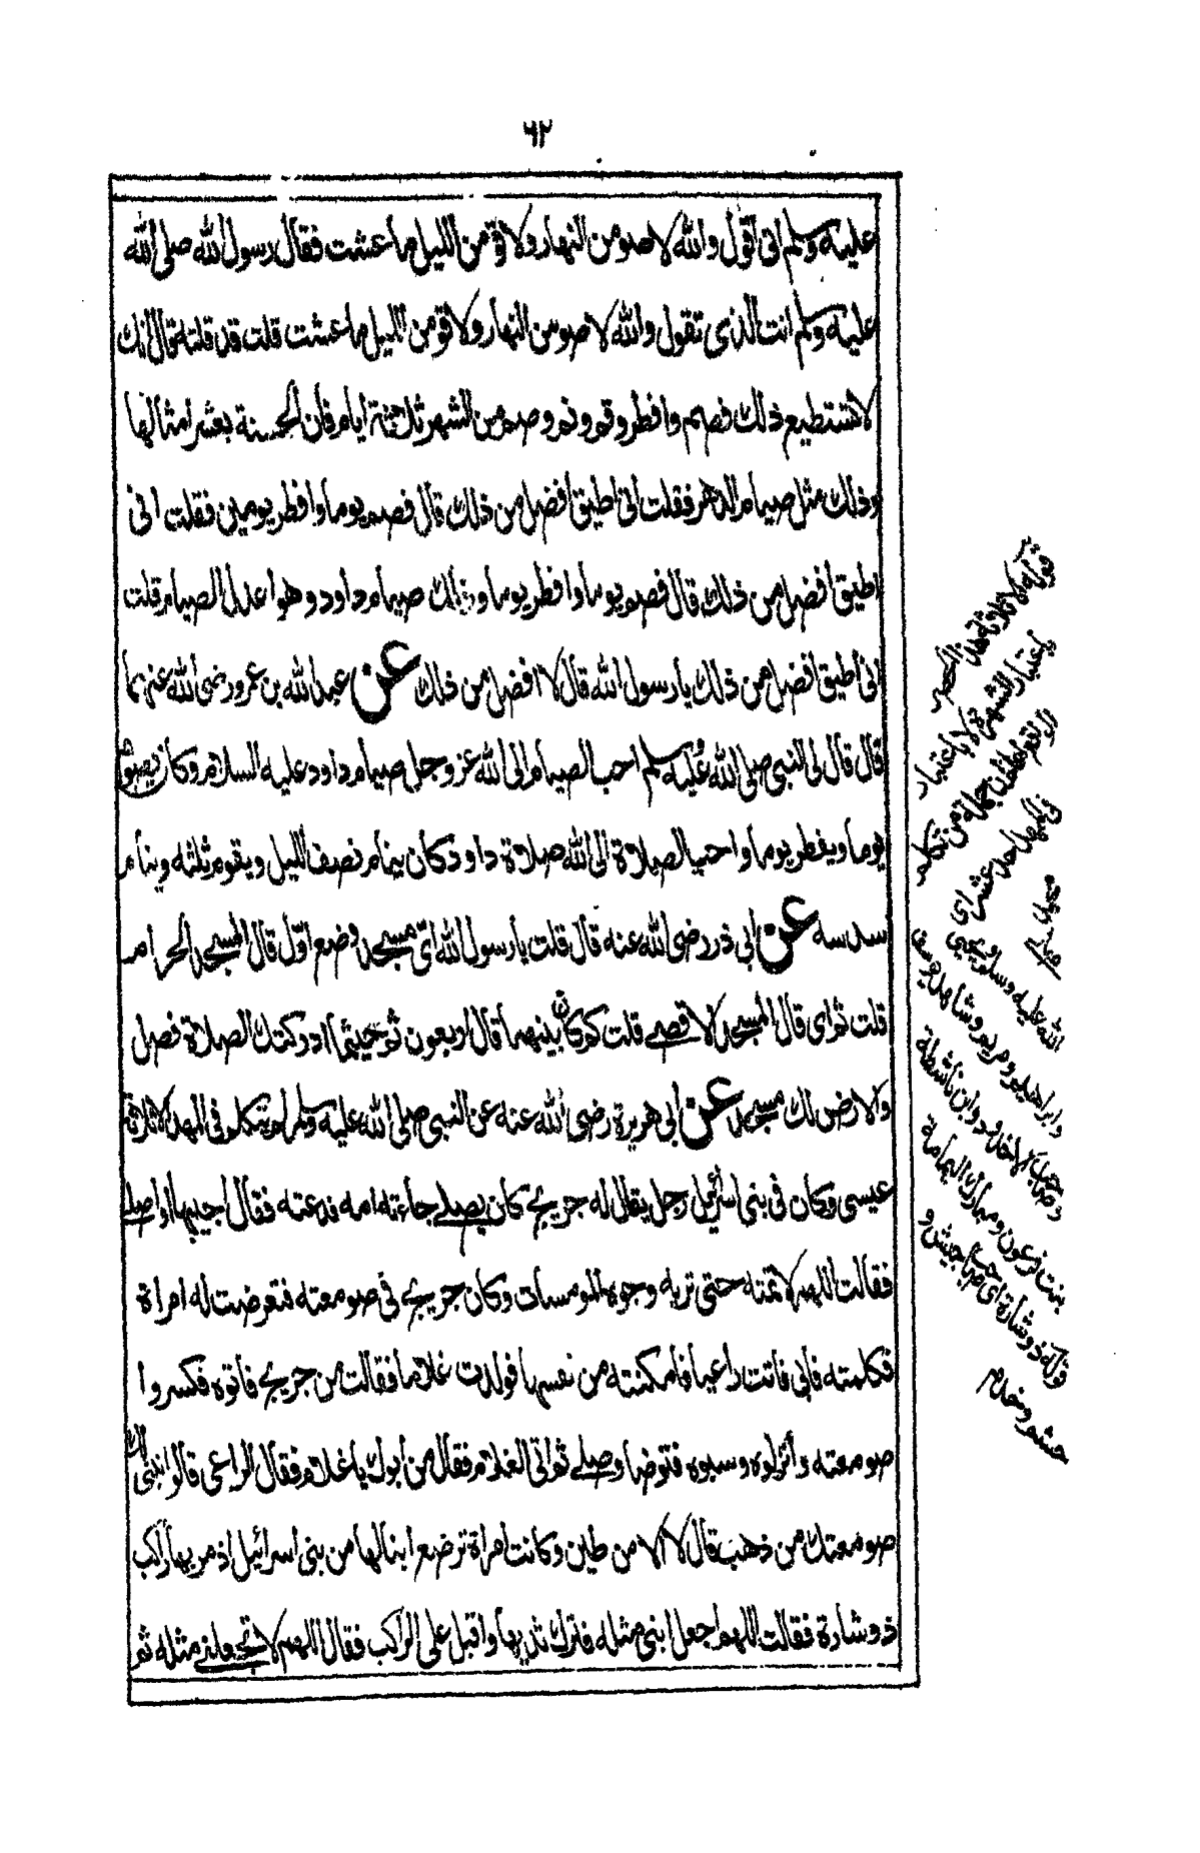 ٦٢
عليه وسلم انى اقول والله لاصومن النهار ولاقومن الليل ما عشت فقال رسول الله صلى الله
عليه وسلم انت الذى تقول والله لاصومن النهار ولاقومن الليل ما عشت قلت قد قلته قال انك
لا تستطيع ذلك فصم وافطر وقم ونم وصم من الشهر ثلاثة ايام فان الحسنة بعشر امثالها
وذلك مثل صيام الدهر فقلت انى اطيق افضل من ذلك قال فصم يوما وافطر يومين فقلت انى
اطيق افضل من ذلك قال فصم يوما وافطر يوما وذلك صيام داود وهو اعدل الصيام قلت
انى أطيق افضل من ذلك يا رسول الله قال لا افضل من ذلك عن عبد الله بن عمرو رضى الله عنهما
قال قال لى النبى صلى الله عليه وسلم احب الصيام الى الله عز وجل صيام داود عليه السلام وكان يصوم
يوما ويفطر يوما واحب الصلاة الى الله صلاة داود كان ينام نصف الليل ويقوم ثلثه وينام
سدسه عن ابى ذر رضى الله عنه قال قلت يا رسول الله اى مسجد وضع اول قال المسجد الحرام
قلت ثم اى قال المسجد الاقصے قلت كم كان بينهما قال اربعون ثم حيثما ادركتك الصلاة فصل
والارض لك مسجد عن ابى هريرة رضى الله عنه عن النبى صلى الله عليه وسلم لم يتكلم فى المهد الا ثلاثة
عيسى وكان فى بنى اسرائيل رجل يقال له جريج كان يصلے جاءته امه فدعته فقال اجيبها او اصلے
فقالت اللهم لا تمته حتى تريه وجوه المومسات وكان جريج فى صومعته فتعرضت له امراة
فكلمته فابى فاتت راعيا فامكنته من نفسها فولدت غلاما فقالت من جريج فاتوه فكسروا
صومعته وأنزلوه وسبوه فتوضا وصلے ثم اتى الغلام فقال من أبوك يا غلام فقال الراعى قالوا نبنى لك
صومعتك من ذهب قال لا الا من طين وكانت امراة ترضع ابنا لها من بنى اسرائيل اذ مر بها راكب
ذو شارة فقالت اللهم اجعل ابنى مثله فترك ثديها واقبل على الراكب فقال اللهم لا تجعلنے مثله ثم
قوله الا ثلاثة هذا الحصر
باعتبار الشهرة لا باعتبار
فى المهد احد عشر اى
محمد صلى
الله عليه وسلم ويحيى
وابراهيم ومريم وشاهد يوسف
وصاحب الاخدود وابن ماشطة
بنت فرعون ومبارك اليمامة
قوله ذو شارة اى صاحب جيش و
حشم وخدم